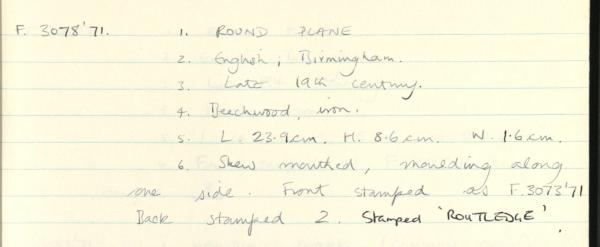 F. 3078'71. 1. ROUND PLANE
2. English; Birmingham.
3. Late 19th century.
4. Beechwood, iron.
5. L. 23.9cm. H. 8.6cm. W. 1.6cm.
6. Skew mouthed, moulding along
one side. Front stamped as F.3073'71
Back stamped 2. Stamped 'ROUTLEDGE'.